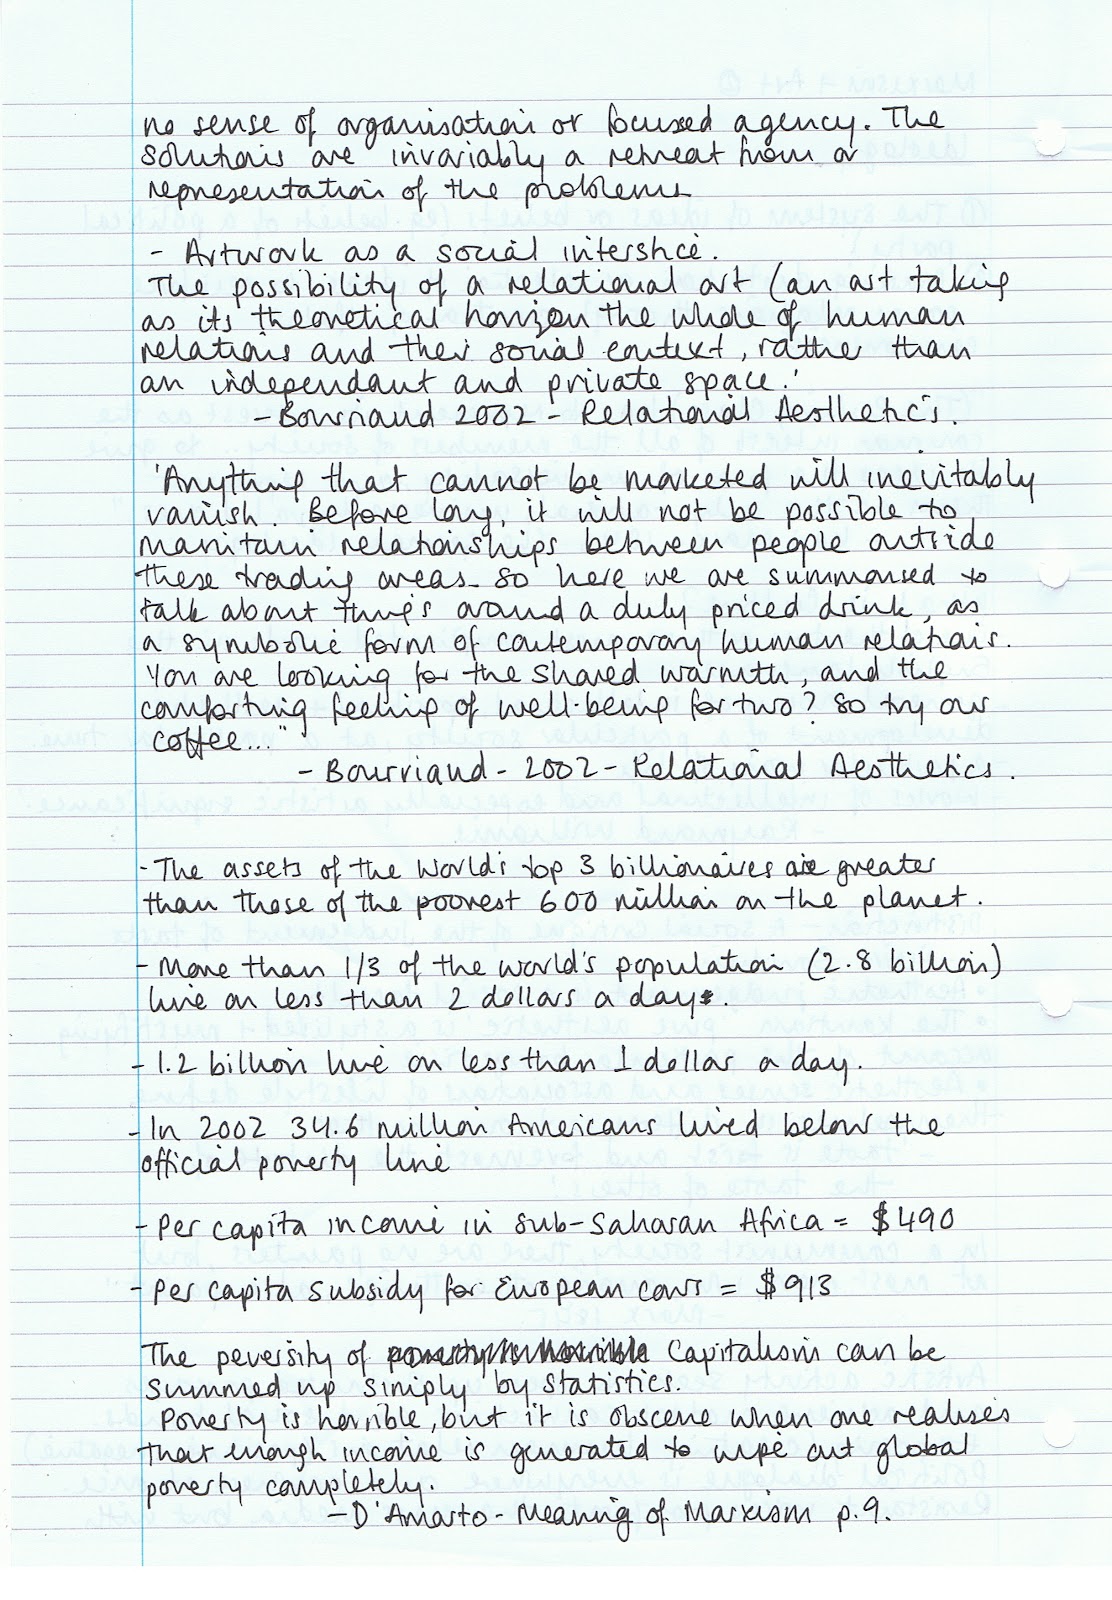 no sense of organisation or focused agency. The
solutions are invariably a retreat from or
representation of the problems
- Artwork as a social interstice.
The possibility of a relational art (an art taking
as its theoretical horizon the whole of human
relations and their social context, rather than
an independant and private space.'
- Bourriaud 2002 - Relational Aesthetic's.
'Anything that cannot be marketed will inevitably
vanish. Before long, it will not be possible to
maintain relationships between people outside
these trading areas. So here we are summonsed to
talk about things around a duly priced drink, as
a symbolic form of contemporary human relations.
You are looking for the shared warmth, and the
comforting feeling of well-being for two? So try our
coffee..."
- Bourriaud - 2002 - Relational Aesthetics.
- The assets of the world's top 3 billionaires are greater
than those of the poorest 600 million on the planet.
- More than 1/3 of the world's population (2.8 billion)
live on less than 2 dollars a day.
- 1.2 billion live on less than 1 dollar a day.
- In 2002 34.6 million Americans lived below the
official poverty line
- Per capita income in sub-Saharan Africa = $490
- Per capita subsidy for European cows = $913
The peversity of Capitalism can be
summed up simply by statistics.
Poverty is horrible, but it is obscene when one realises
that enough income is generated to wipe out global
poverty completely.
- D'Amarto - Meaning of Marxism p.9.